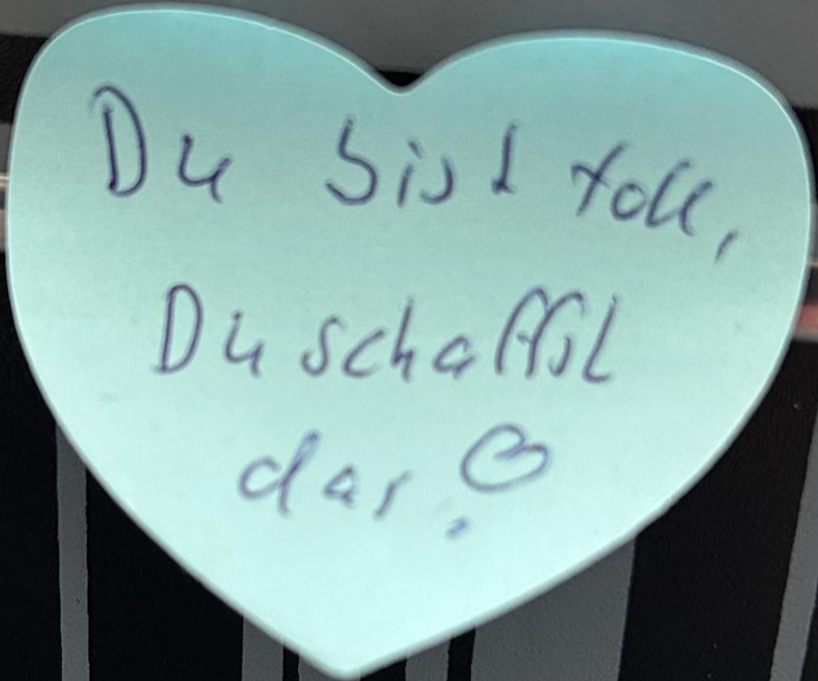 Du bist toll,
Du schaffst
das!